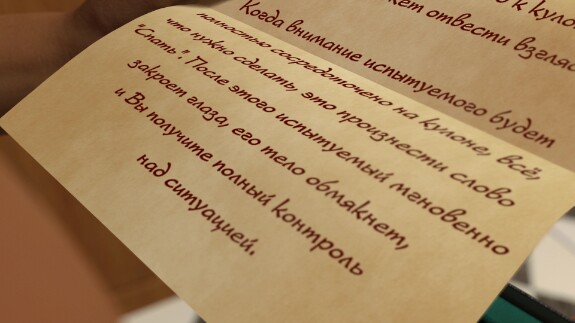 к кулон
жет отвести взгляд
Когда внимание испытуемого будет
полностью сосредоточено на кулоне, всё,
что нужно сделать, это произнести слово
"Спать". После этого испытуемый мгновенно
закроет глаза, его тело обмякнет,
и Вы получите полный контроль
над ситуацией.